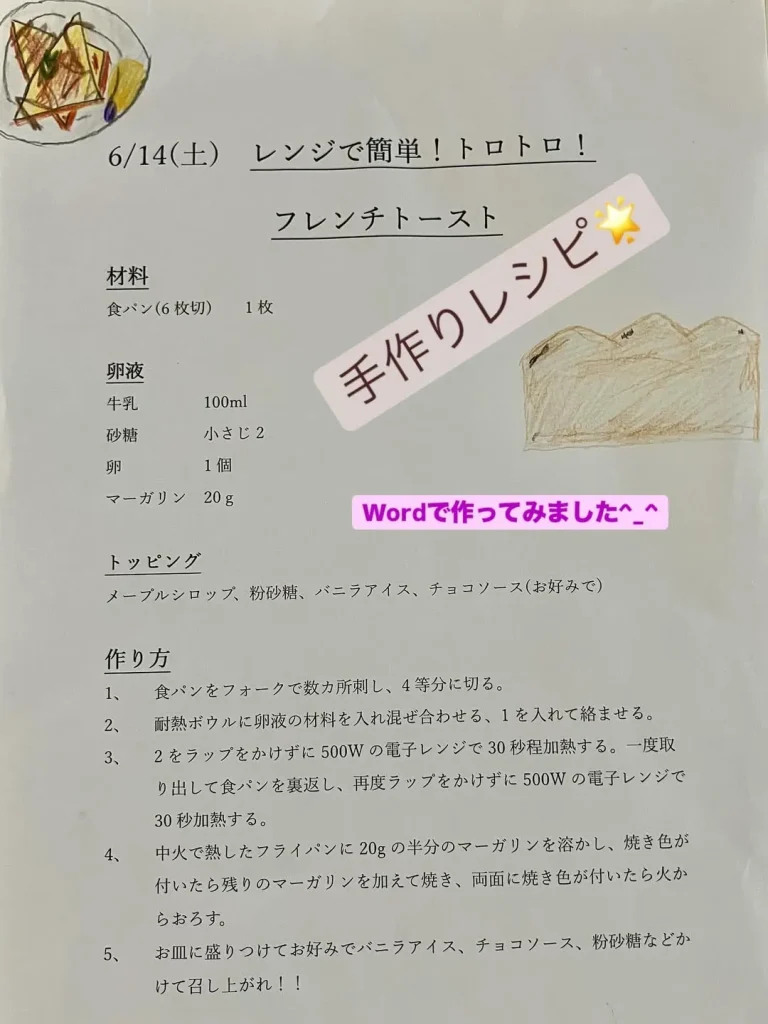 6/14(土) レンジで簡単！トロトロ！
フレンチトースト
手作りレシピ
材料
食パン(6枚切) 1枚
卵液
牛乳 100ml
砂糖 小さじ2
卵 1個
マーガリン 20g
Wordで作ってみました^_^
トッピング
メープルシロップ、粉砂糖、バニラアイス、チョコソース(お好みで)
作り方
1、 食パンをフォークで数カ所刺し、4等分に切る。
2、 耐熱ボウルに卵液の材料を入れ混ぜ合わせる、1を入れて絡ませる。
3、 2をラップをかけずに500Wの電子レンジで30秒程加熱する。一度取
り出して食パンを裏返し、再度ラップをかけずに500Wの電子レンジで
30秒加熱する。
4、 中火で熱したフライパンに20gの半分のマーガリンを溶かし、焼き色が
付いたら残りのマーガリンを加えて焼き、両面に焼き色が付いたら火か
らおろす。
5、 お皿に盛りつけてお好みでバニラアイス、チョコソース、粉砂糖などか
けて召し上がれ！！